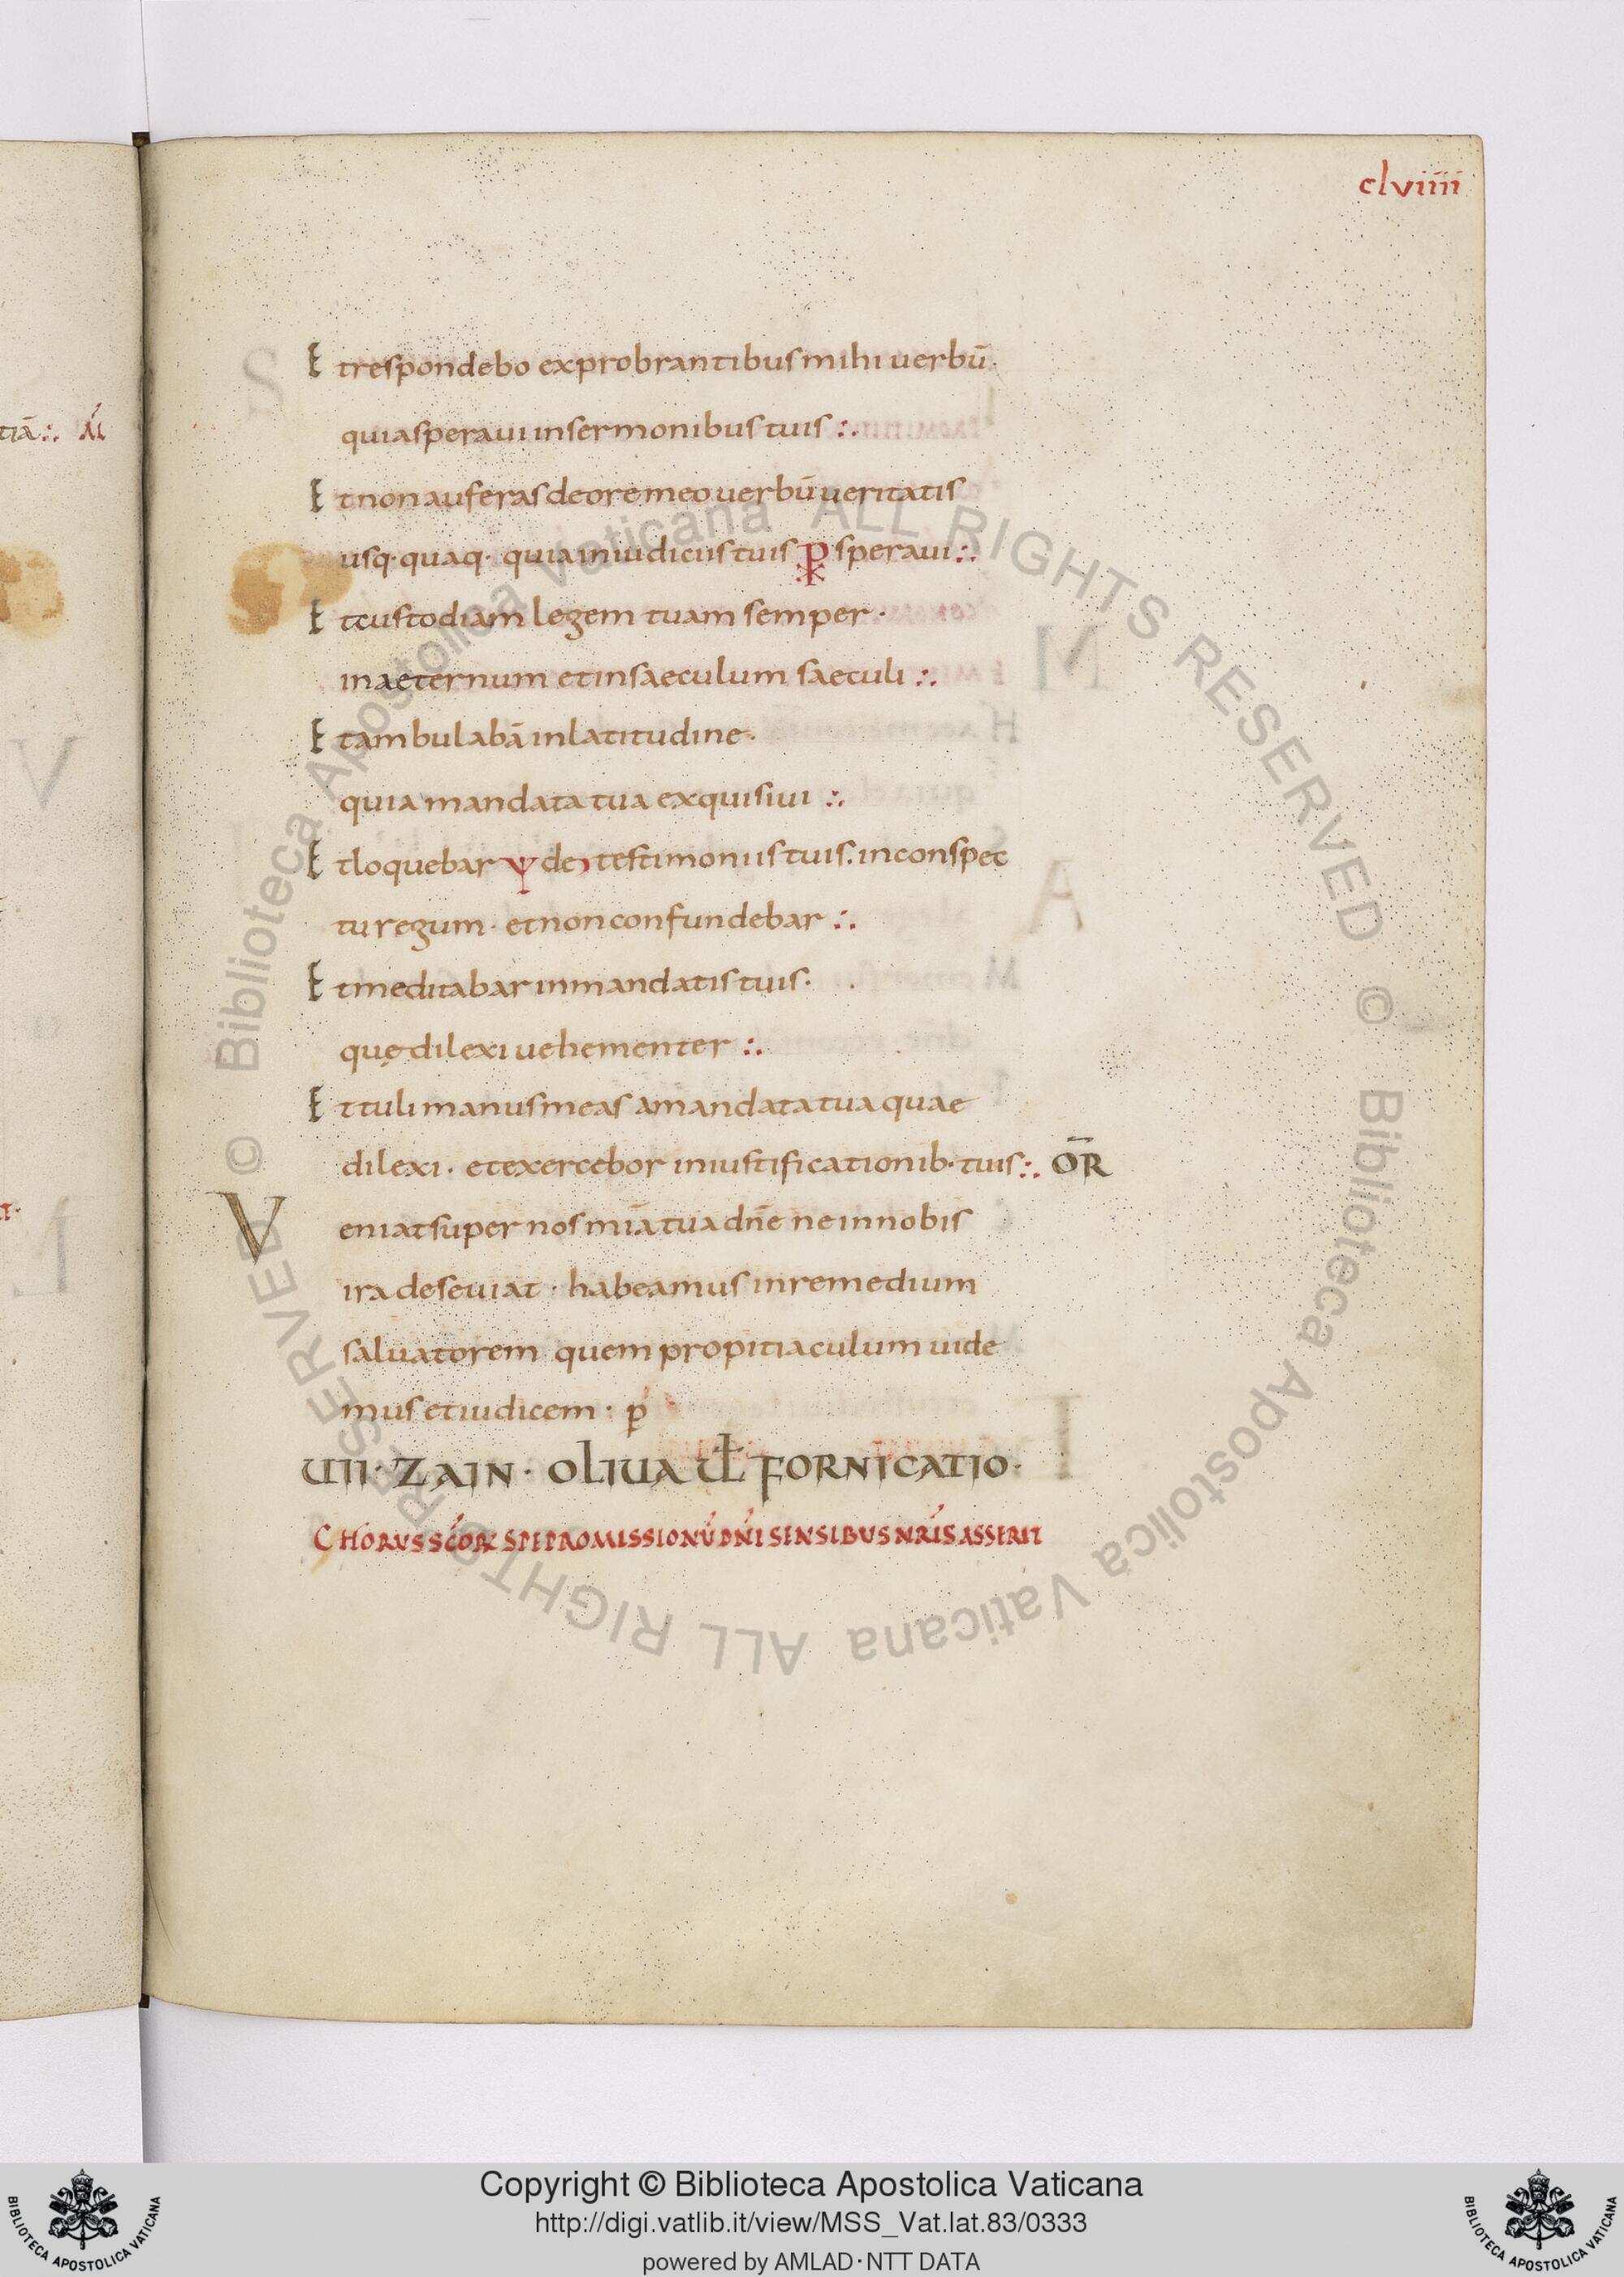 clviiii
Et respondebo exprobrantibus mihi uerbū·
quia speraui in sermonibus tuis :.
Et non auferas de ore meo uerbū ueritatis
usq· quaq· quia in iudiciis tuis ⳨ speraui :.
Et custodiam legem tuam semper ·
in aeternum et in saeculum saeculi :.
Et ambulabā in latitudine·
quia mandata tua exquisiui :.
Et loquebar ψ de testimoniis tuis. in conspec
tu regum · et non confundebar :.
Et meditabar in mandatis tuis·
quę dilexi uehementer :.
Et tuli manus meas a mandata tua quae
dilexi · et exercebor in iustificationib· tuis :. ōR
Veniat super nos mīa tua dn̄e ne in nobis
ira deseuiat · habeamus in remedium
saluatorem quem propitiaculum uide
mus et iudicem · p
UII· ZAIN · OLIUA UL̄ FORNICATIO·
CHORUS SCŌR SPE PROMISSIONŪ DN̄I SENSIBUS NRĪS ASSERIT
Copyright © Biblioteca Apostolica Vaticana
http://digi.vatlib.it/view/MSS_Vat.lat.83/0333
powered by AMLAD·NTT DATA
BIBLIOTECA APOSTOLICA VATICANA
BIBLIOTECA APOSTOLICA VATICANA
© Biblioteca Apostolica Vaticana ALL RIGHTS RESERVED © Biblioteca Apostolica Vaticana ALL RIGHTS RESERVED